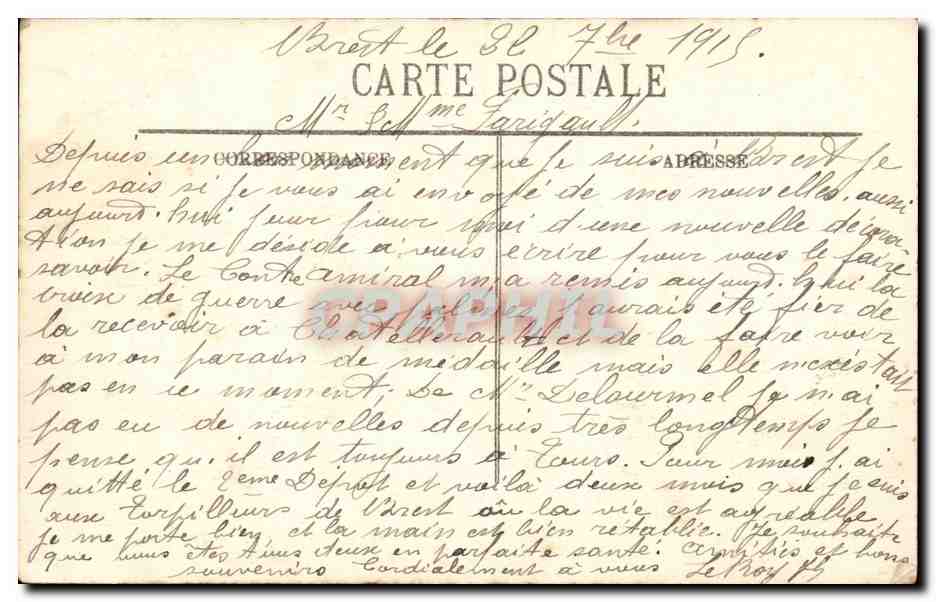 Brest le 22 7bre 1915.
CARTE POSTALE
Mr & Mme Farigault.
CORRESPONDANCE
ADRESSE
Depuis un moment que je suis à Brest je
ne sais si je vous ai envoyé de mes nouvelles, aussi
aujourd'hui jour pour moi d'une nouvelle décora
tion je me déside à vous écrire pour vous le faire
savoir. Le Contre amiral m'a remis aujourd'hui la
croix de guerre avec j'aurais été fier de
la recevoir à Chatellerault et de la faire voir
à mon parain de médaille mais elle n'exéstait
pas en ce moment, De Mr Delourmel je n'ai
pas eu de nouvelles depuis très longtemps je
pense qu'il est toujours à Tours. Pour moi j'ai
quitté le 2eme Dépot et voilà deux mois que je suis
aux Torpilleurs de Brest où la vie est agréable
je me porte bien et la main est bien rétablie. Je souhaite
que vous êtes tous deux en parfaite santé. amitiés et bons
souvenirs Cordialement à vous Le Roy
CPAPHIL